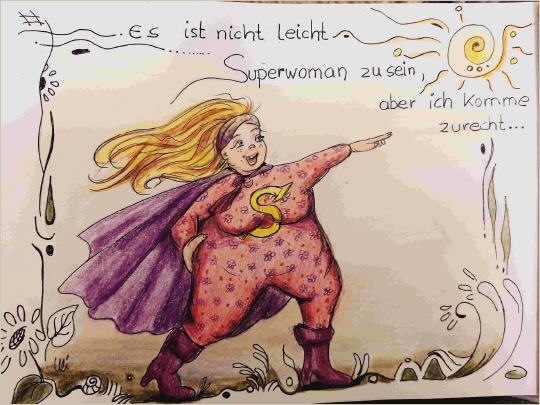 Es ist nicht leicht
Superwoman zu sein,
aber ich komme
zurecht...
S